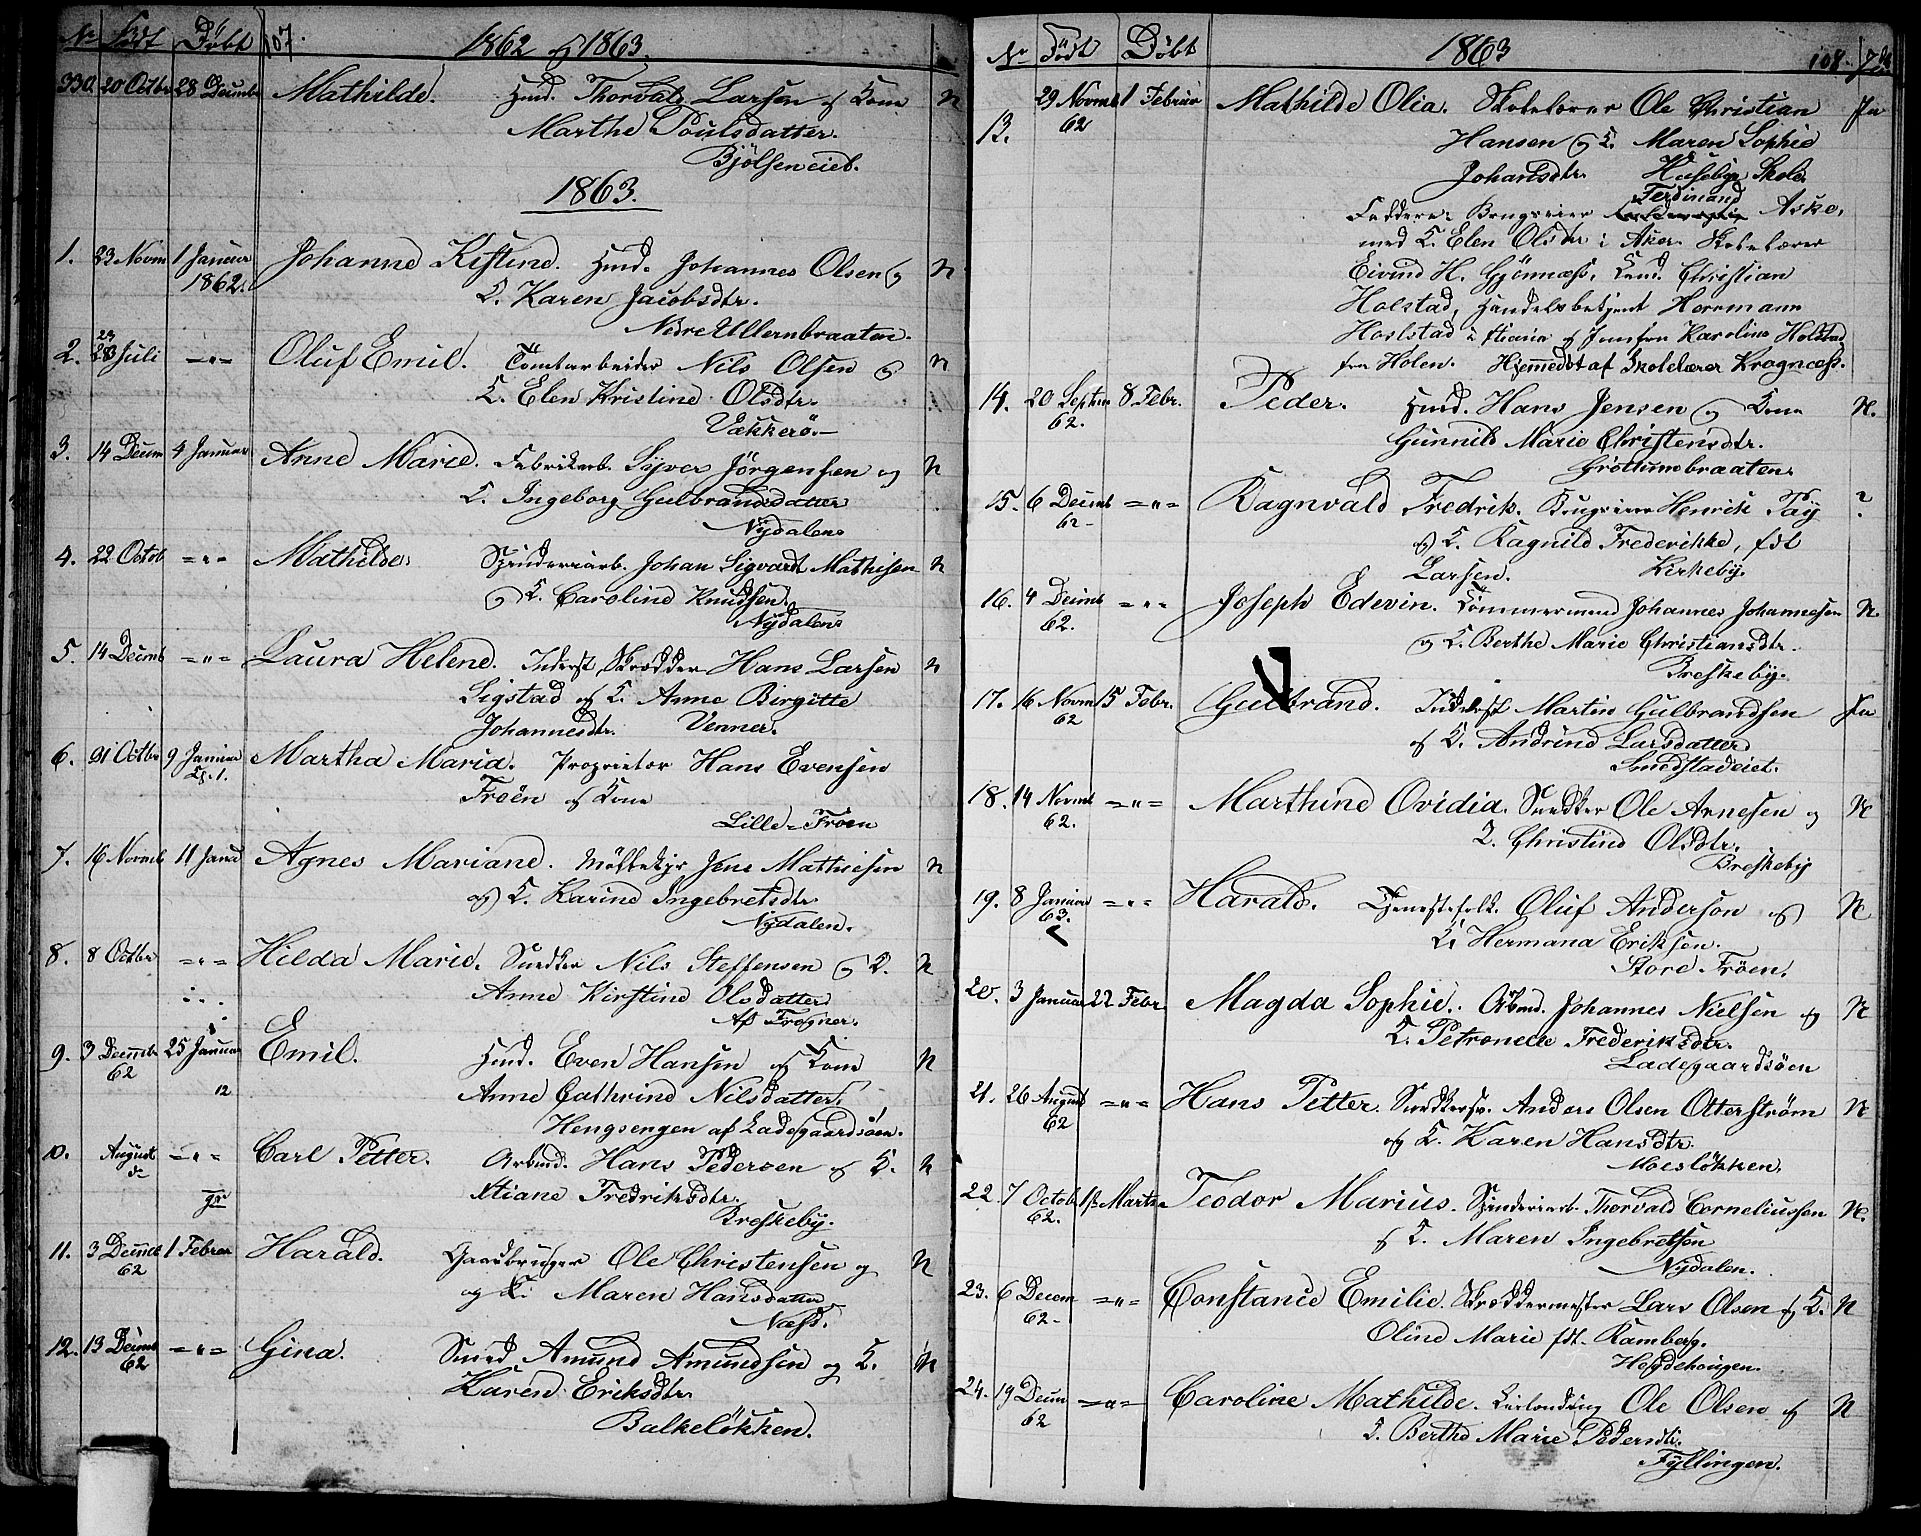 Nr Födt Döbt 107. 1862 og 1863.
330. 20 Octbr 28 Decmbr Mathilde. Husd. Thorvald Larsen og Kone N
Marthe Poulsdatter.
Bjölseneiet.
1863.
1. 23 Novm 1 Januar Johanne Kistine. Husd. Johannes Olsen og N
1862. K. Karen Jacobsdtr.
Nedre Ullernbraaten.
2. 28 Juli -"- Oluf Emil. Tomtarbeider Nils Olsen og N
K. Elen Kristine Olsdtr.
Vækkerö.
3. 14 Decmb 4 Januar Anne Marie. Fabrikarb. Syver Jörgensen og N
K. Ingeborg Gulbrandsdatter
Nydalen
4. 22 Octob -"- Mathilde. Spinderiarb. Johan Sigvardt Mathisen N
og K. Caroline Knudsen.
Nydalen
5. 14 Decmb -"- Laura Helene. Inderst Skrædder Hans Larsen N
Sigstad og K. Anne Birgitte
Johannesdtr. Venner.
6. 21 Octbr 9 Januar Martha Maria. Proprietær Hans Evensen
Fröen og Kone
Lille-Fröen
7. 16 Novmb 11 Janu Agnes Mariane. Jens Mathiesen N
og K. Karine Ingebretsdtr.
Nydalen.
8. 8 Octbr -"- Hilda Marie. Snedker Nils Steffensen og K. N
Anne Kirstine Olsdatter
Af Frogner.
9. 3 Decmb 25 Januar Emil. Husd. Even Hansen og Kone N
62 12 Anne Cathrine Nilsdatter.
Hengsengen af Ladegaardsöen.
10. August -"- Carl Petter. Arbmd. Hans Pedersen og K. N
Xtiane Fredriksdtr.
Breskeby.
11. 3 Decmb 1 Februar Harald. Gaardbruger Ole Christensen og N
62 og K. Maren Hansdatter
Næss.
12. 13 Decmb -"- Gina. Smed Amund Amundsen og K. N
62 Karen Eriksdtr.
Balkelökken.
Nr Födt Döbt 1863 108.
13. 29 Novmb 1 Februar Mathilde Olia. Skolelærer Ole Christian Ja
62 Hansen og K. Maren Sophie
Johansdtr. Huseby Skole
Ferdinand
Faddere: Brugseier Aske,
med K. Elen Olsdtr i Aker. Skolelærer
Eivind H. Gjönnæss, Christian
Holstad, Handelsbetjent Herrmann
Holstad i Xtiania og Jomfru Karoline Holstad
fra Holen. Hjemmedöbt af Skolelærer Krognæss.
14. 20 Septm 8 Febr. Peder. Husd. Hans Jensen og Kone N.
62. Gunnild Marie Christensdtr.
Gröttumsbraaten.
15. 6 Decmb -"- Ragnvald Fredrik. Brugseier Henrik Tay ?
62 og K. Ragnild Frederikke, född
Larsen. Kirkeby.
16. 4 Decmb -"- Joseph Edevin. Tömmermand Johannes Johannesen N.
62. og K. Berthe Marie Christiansdtr.
Breskeby.
17. 16 Novm 15 Febr. Gulbrand. Inderst Martin Gulbrandsen Ja
62 og K. Andrine Larsdatter
Smedstadeiet.
18. 14 Novmb -"- Marthine Ovidia. Snedker Ole Arnesen og N
62. K. Christine Olsdtr.
Breskeby
19. 8 Januar -"- Harald. Tjenestefolk. Oluf Anderson og N
63. K. Hermana Eriksen.
Store Fröen.
20. 3 Januar 22 Febr. Magda Sophie. Arbmd. Johannes Nielsen og N
K. Petronelle Frederiksdtr.
Ladegaardsöen
21. 26 August -"- Hans Petter. Snedkersv. Anders Olsen Otterström N
62 og K. Karen Hansdtr.
Moeslökken.
22. 7 Octob 1ste Marts Teodor Marius. Spinderiarb. Thorvald Corneliussen N.
62. og K. Maren Ingebretsen
Nydalen.
23. 6 Decem -"- Constance Emilie. Skræddermester Lars Olsen og K. N
62 Oline Marie född Ramberg.
Hegdehougen.
24. 19 Decm -"- Caroline Mathilde. Ole Olsen og N
62 K. Berthe Marie Pedersdtr.
Fyllingen.